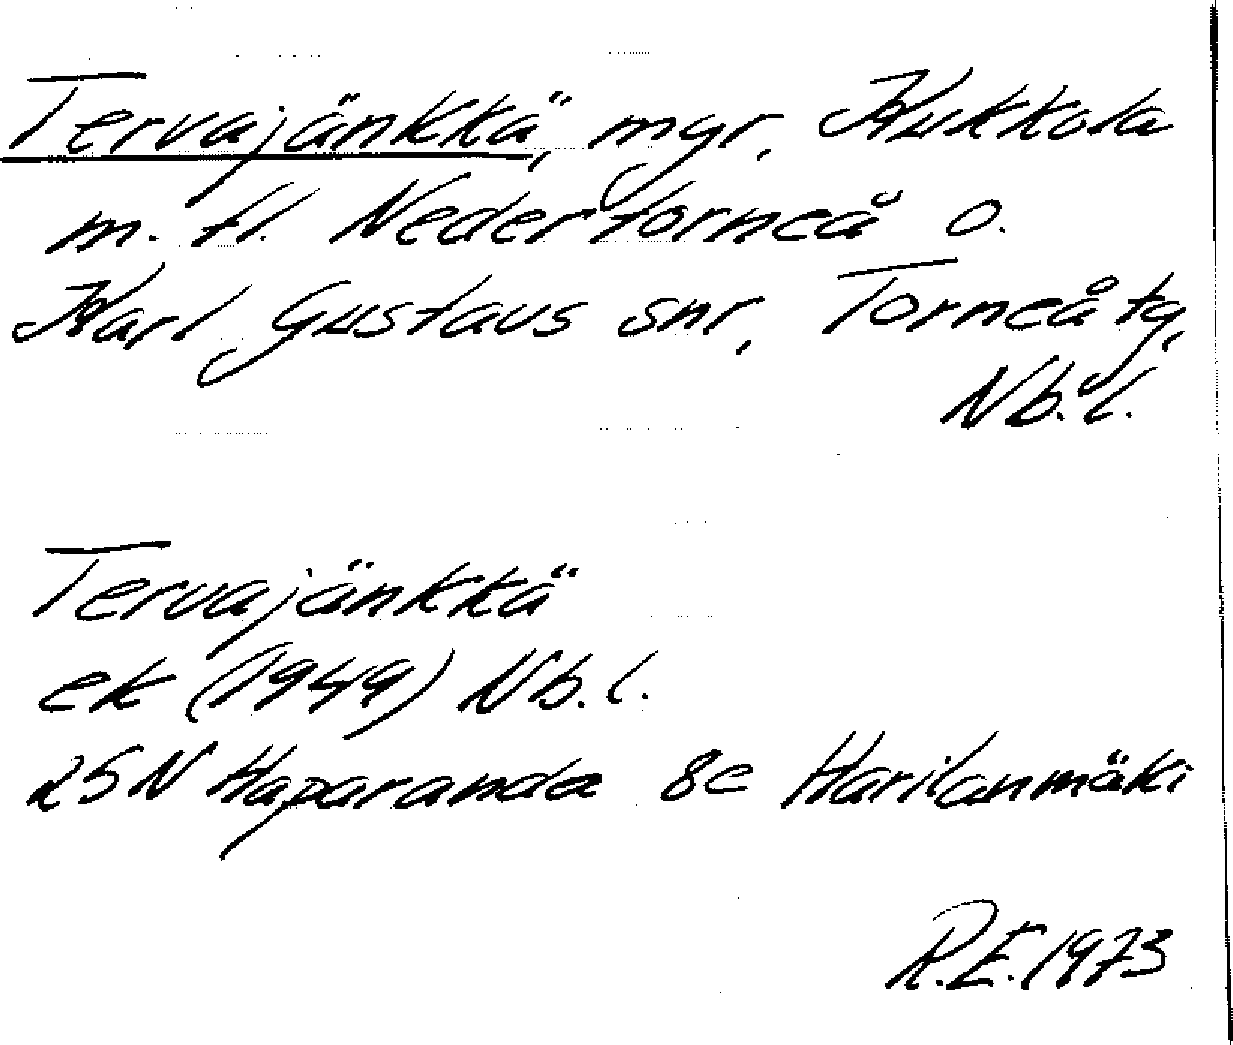 Tervajänkkä, mgr, Kukkola
m. fl. Nedertorneå o.
Karl Gustavs snr, Torneå tg,
Nb. l.
Tervajänkkä
ek (1949) Nb. l.
25N Haparanda 8e Harilanmäki
R.E. 1973